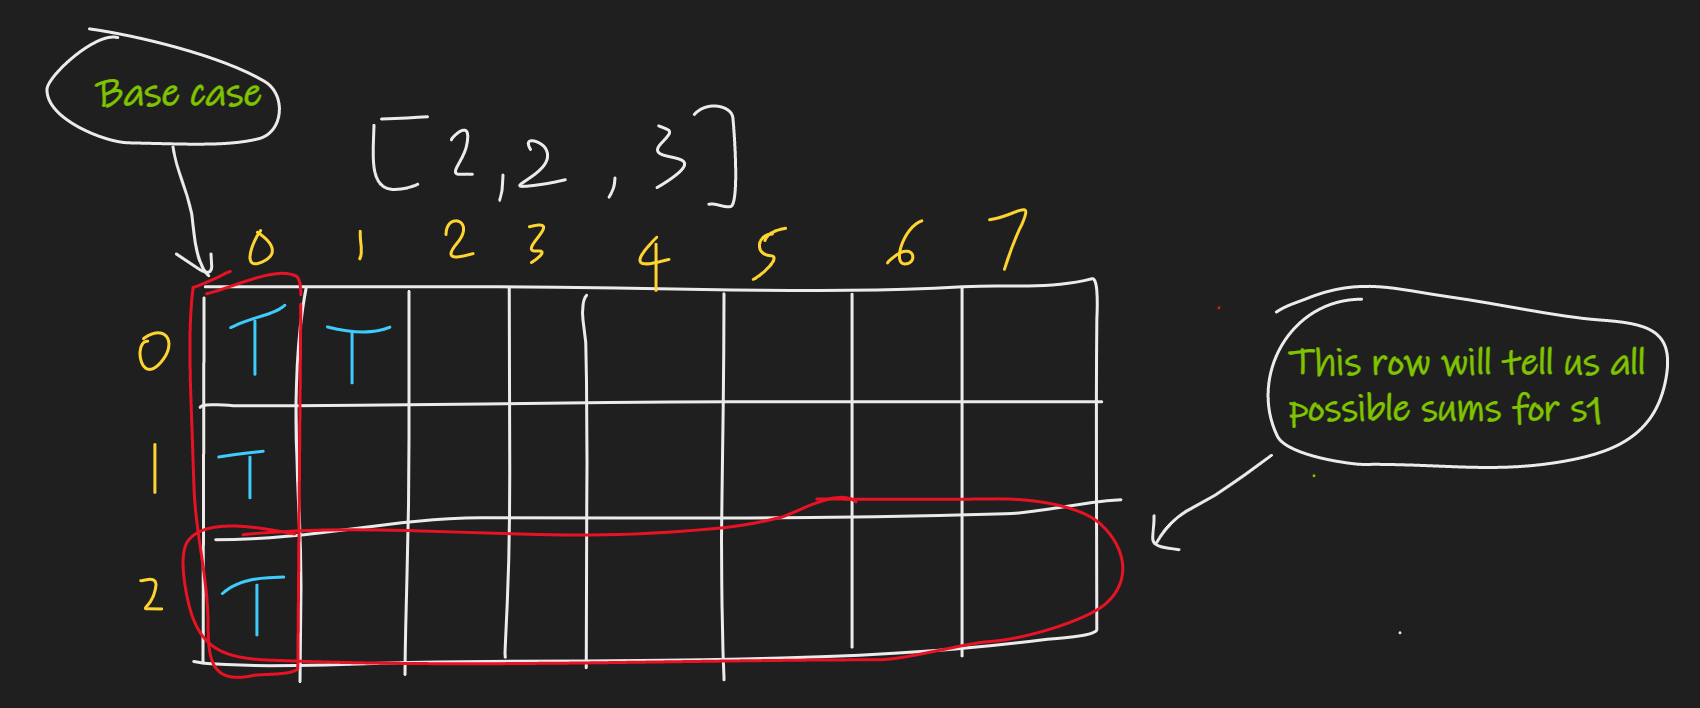 Base case
[2,2,3]
0 1 2 3 4 5 6 7
0 T T
This row will tell us all
possible sums for s1
1 T
2 T